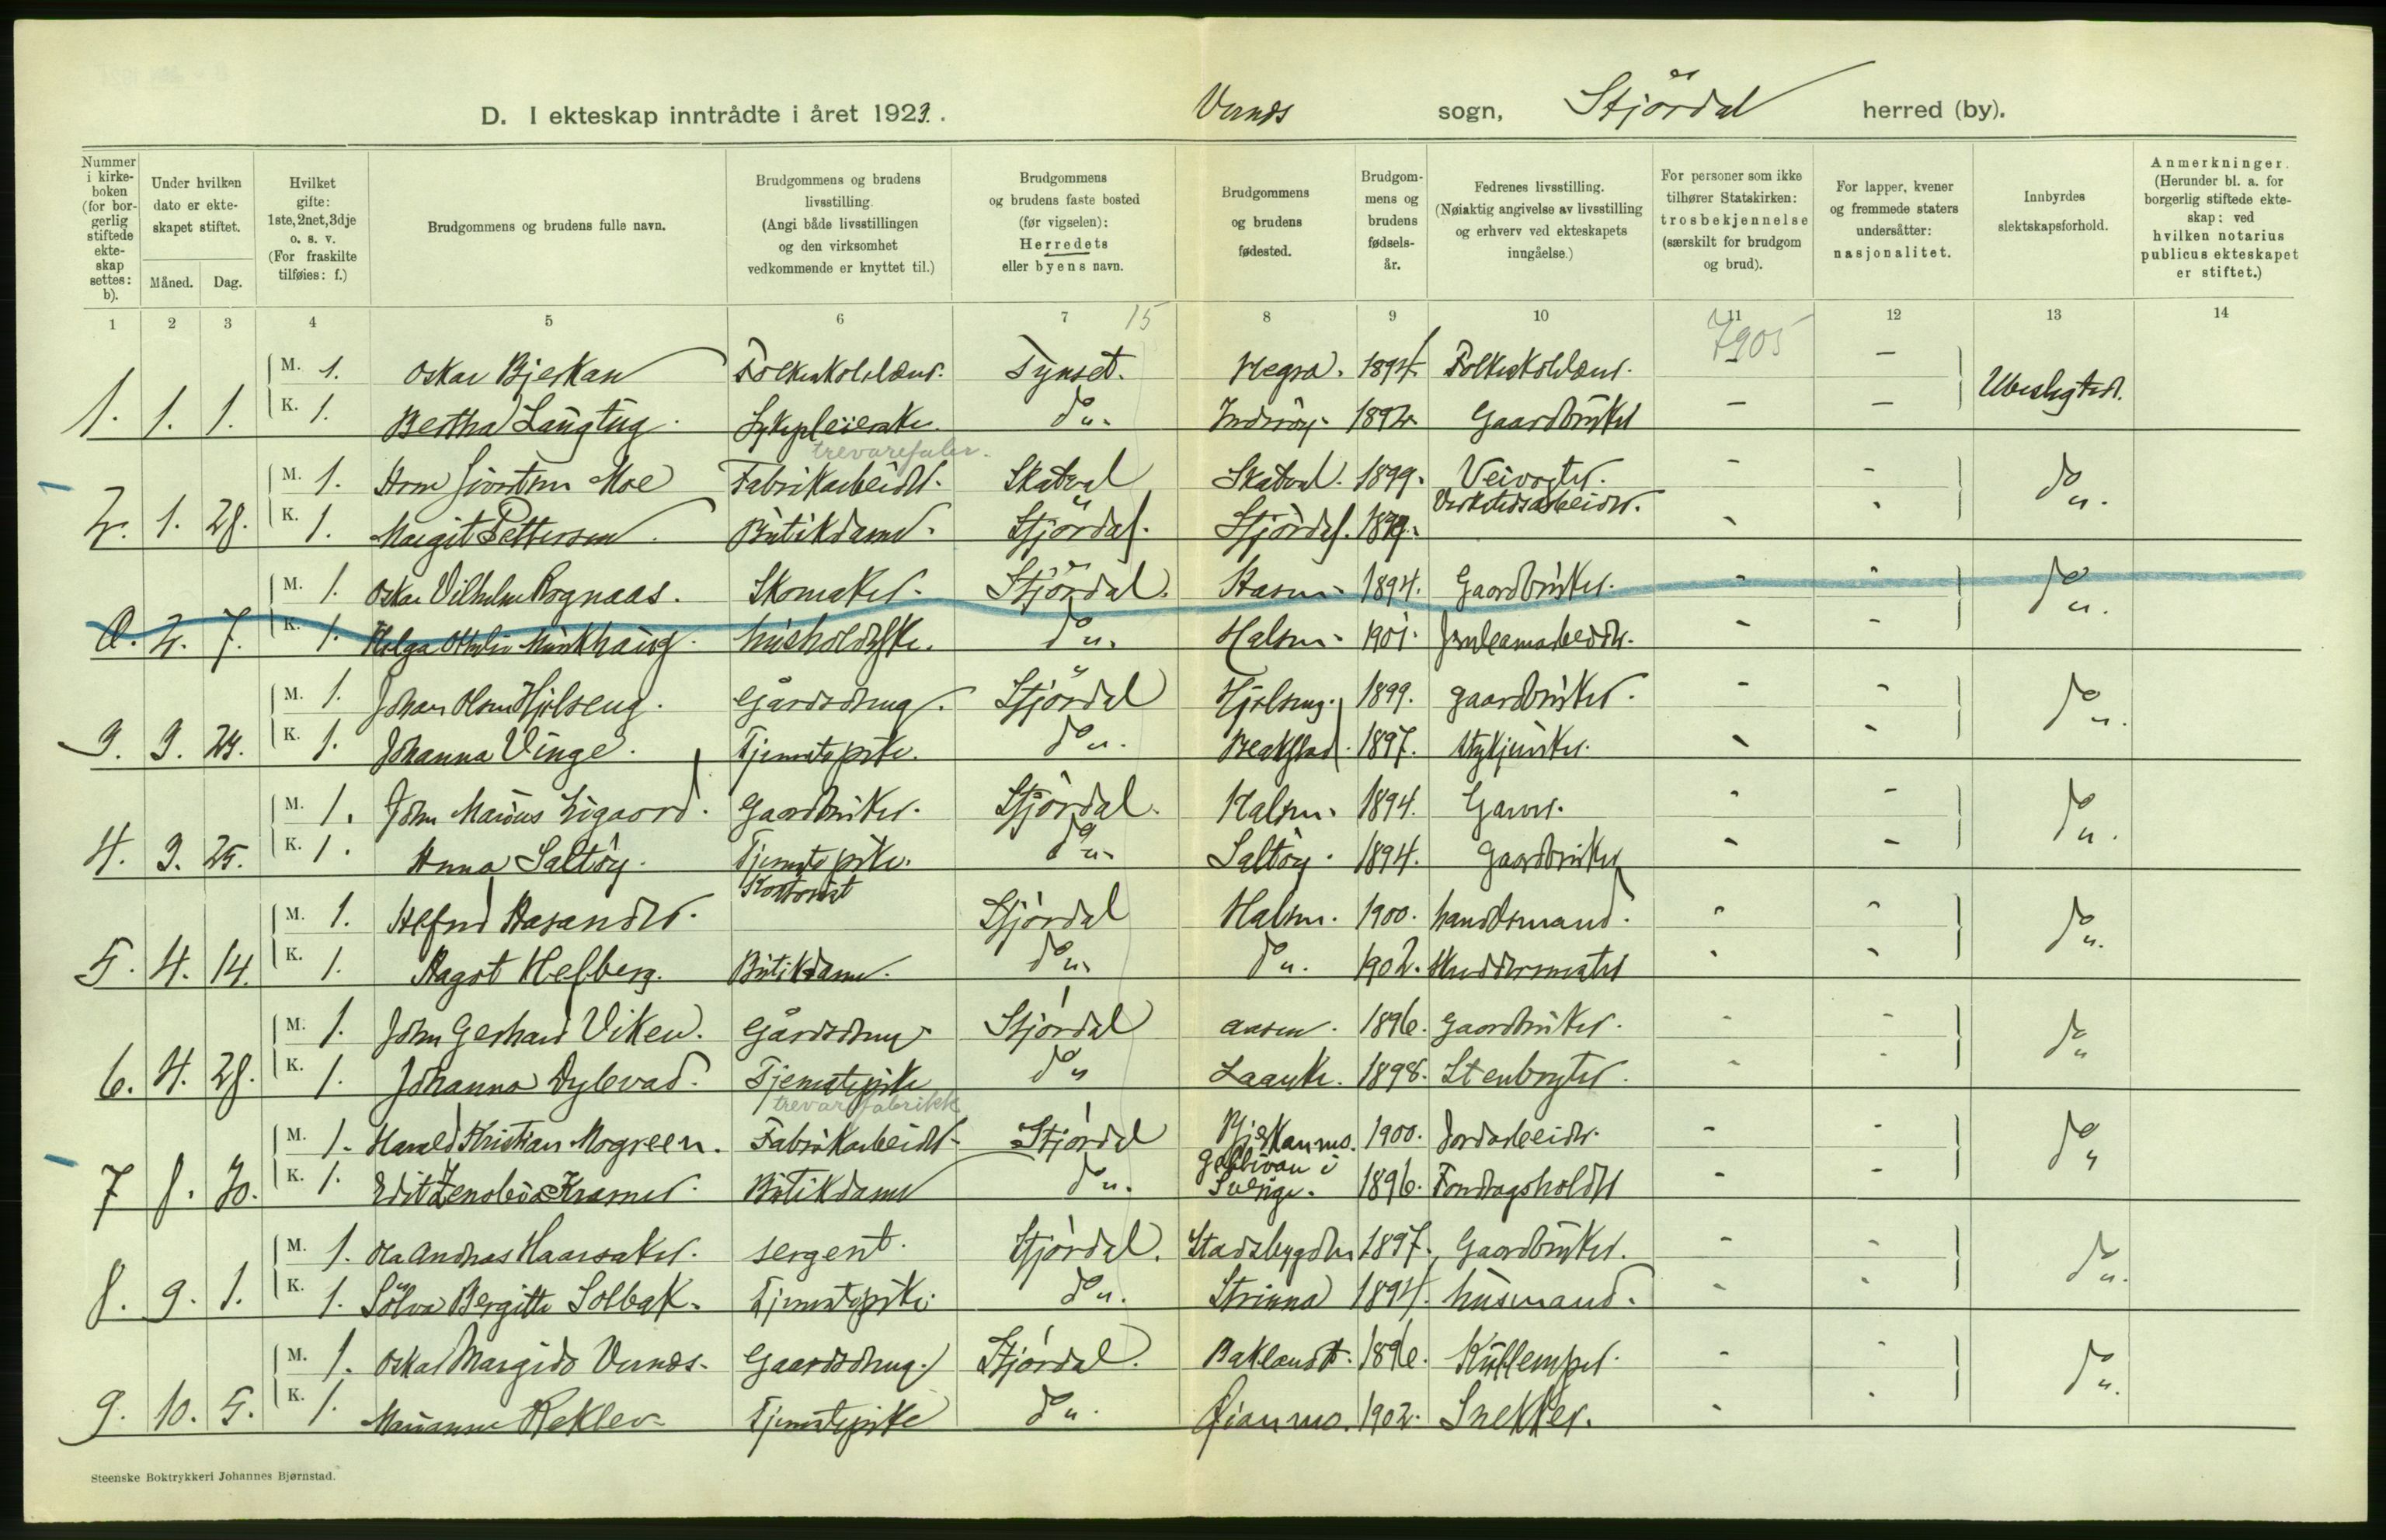 D. I ekteskap inntrådte i året 1923. Vernes sogn, Stjördal herred (by).
Nummer i kirkeboken (for borgerlig stiftede ekteskap settes: b).
Under hvilken dato er ekteskapet stiftet.
Måned. Dag.
Hvilket gifte: 1ste, 2net, 3dje o. s. v. (For fraskilte tilføies: f.)
Brudgommens og brudens fulle navn.
Brudgommens og brudens livsstilling. (Angi både livsstillingen og den virksomhet vedkommende er knyttet til.)
Brudgommens og brudens faste bosted (før vigselen): Herredets eller byens navn.
Brudgommens og brudens fødested.
Brudgommens og brudens fødselsår.
Fedrenes livsstilling. (Nøiaktig angivelse av livsstilling og erhverv ved ekteskapets inngåelse.)
For personer som ikke tilhører Statskirken: trosbekjennelse (særskilt for brudgom og brud).
For lapper, kvener og fremmede staters undersåtter: nasjonalitet.
Innbyrdes slektskapsforhold.
Anmerkninger. (Herunder bl. a. for borgerlig stiftede ekteskap: ved hvilken notarius publicus ekteskapet er stiftet.)
1 2 3 4 5 6 7 15 8 9 10 11 12 13 14
7905
M. 1. Oskar Bjerkan Folkeskolelærer. Tynset. Hegra. 1894. Folkeskolelærer. — —
1. 1. 1. K. 1. Bertha Langtug. Sykepleierske. do. Inderöy. 1892. Gaardbruker — — Ubeslegtet.
trevarefabr.
M. 1. Arne Moe Fabrikarbeider. Skatval Skatval. 1899. Veivogter. - -
2. 1. 28. K. 1. Margit Pettersen. Butikdame. Stjördal. Stjördal. Verkstedsarbeider. - - do.
M. 1. Oskar Vilhelm Rognaas. Skomaker. Stjördal. 1894. Gaardbruker. - -
0. 2. 7. K. 1. Helga Munkhaug. husholderske. do. Halsen. 1901. - - do.
M. 1. Johan Olsen Hjelseng. Gårdsdreng. Stjördal Hjelseng. 1899. gaardbruker. - -
3. 3. 24. K. 1. Johanna Vinge. Tjenestepike. do. 1897. - - do.
M. 1. John Marius Ligaard. Gaardbruker. Stjördal. Halsen. 1894. Garver. - -
4. 3. 25. K. 1. Anna Saltöy. Tjenestepike. do. Saltöy. 1894. Gaardbruker - - do.
Kontorist
M. 1. Alfred Stjördal Halsen. 1900. handelsmand. - -
5. 4. 14. K. 1. Aagot Helberg. Butikdame. do. do. 1902. - - do.
M. 1. John Gerhard Viken. Gårdsdreng Stjördal 1896. Gaardbruker. - -
6. 4. 28. K. 1. Johanna Dylevad. Tjenestepike do Laanke. 1898. Stenbryter. - - do
trevarefabrikk
M. 1. Harald Kristian Mogreen. Fabrikarbeider Stjördal Bjerkanmo. 1900. Jordarbeider. - -
7 8. 30. K. 1. Edit Zenobia Kramer. Butikdame do. Gellivare i Sverige. 1896. - - do
M. 1. Ola Andreas Haarsaker. sergent. Stjördal. Stadsbygden 1897. Gaardbruker. - -
8. 9. 1. K. 1. Sölva Bergitte Solbak. Tjenestepike. do. Strinna 1894. husmand. - - do.
M. 1. Oskar Margido Vernes. Gaardsdreng. Stjördal. Baklandet. 1896. Kullemper. - -
9. 10. 5. K. 1. Marianne Reklev. Tjenestepike do. Öianmo. 1902. Snekker. - - do.
Steenske Boktrykkeri Johannes Bjørnstad.